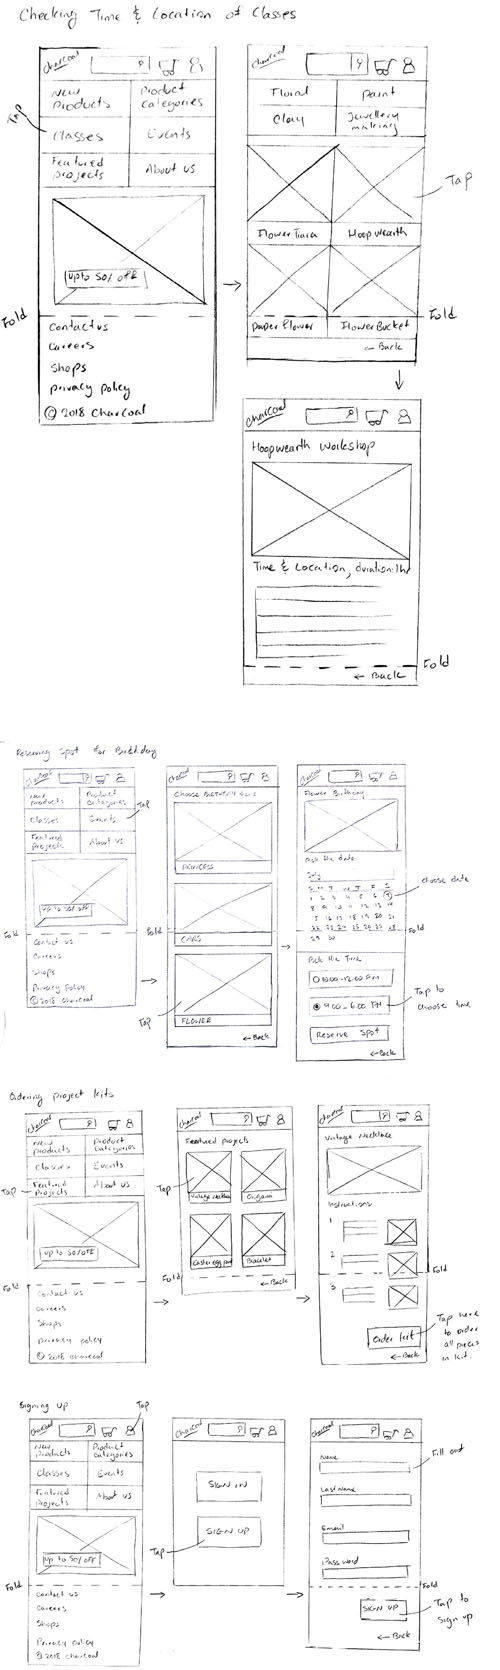 Checking Time & Location of Classes
Charcoal
New Products
Product Categories
Tap
Classes
Events
Featured projects
About us
up to 50% OFF
Fold
Contact us
Careers
Shops
privacy policy
© 2018 Charcoal
Charcoal
Floral
paint
Clay
Jewellery making
Tap
Flower Tiara
Hoop wearth
paper flower
Flower Bucket
Fold
← Back
Charcoal
Hoopwearth Workshop
Time & Location, duration: 1hr
Fold
← Back
Reserving Spot for Birthday
Charcoal
New products
Product Categories
Tap
Classes
Events
Featured Projects
About us
up to 50% OFF
Fold
Contact us
Careers
Shops
Privacy Policy
© 2018 Charcoal
Charcoal
Choose BIRTHDAY
PRINCESS
Fold
CARS
Tap
FLOWER
← Back
Charcoal
Flower Birthday
Pick the date
July
S M T W T F S
1 2 3 4 5 6 7
8 9 10 11 12 13 14
15 16 17 18 19 20 21
22 23 24 25 26 27 28
29 30
choose date
Fold
Pick the Time
10:00-12:00 PM
4:00 - 6:00 PM
Tap to choose time
Reserve Spot
← Back
Ordering project kits
Charcoal
New products
Product Categories
Classes
Events
Tap
Featured Projects
About us
up to 50% OFF
Fold
Contact us
Careers
Shops
privacy policy
© 2018 charcoal
Charcoal
Featured projects
Tap
Vintage Necklace
Origami
Easter egg
Bracelet
Fold
← Back
Charcoal
Vintage Necklace
Instructions
1
2
Fold
3
Order kit
Tap here to order all pieces in kit.
← Back
Signing Up
Tap
Charcoal
New Products
Product Categories
Classes
Events
Featured Projects
About us
up to 50% OFF
Fold
Contact us
Careers
Shops
Privacy Policy
© 2018 charcoal
Charcoal
SIGN IN
SIGN UP
Tap
Charcoal
Name
Fill out
Last Name
Email
Password
Fold
SIGN UP
Tap to sign up
← Back